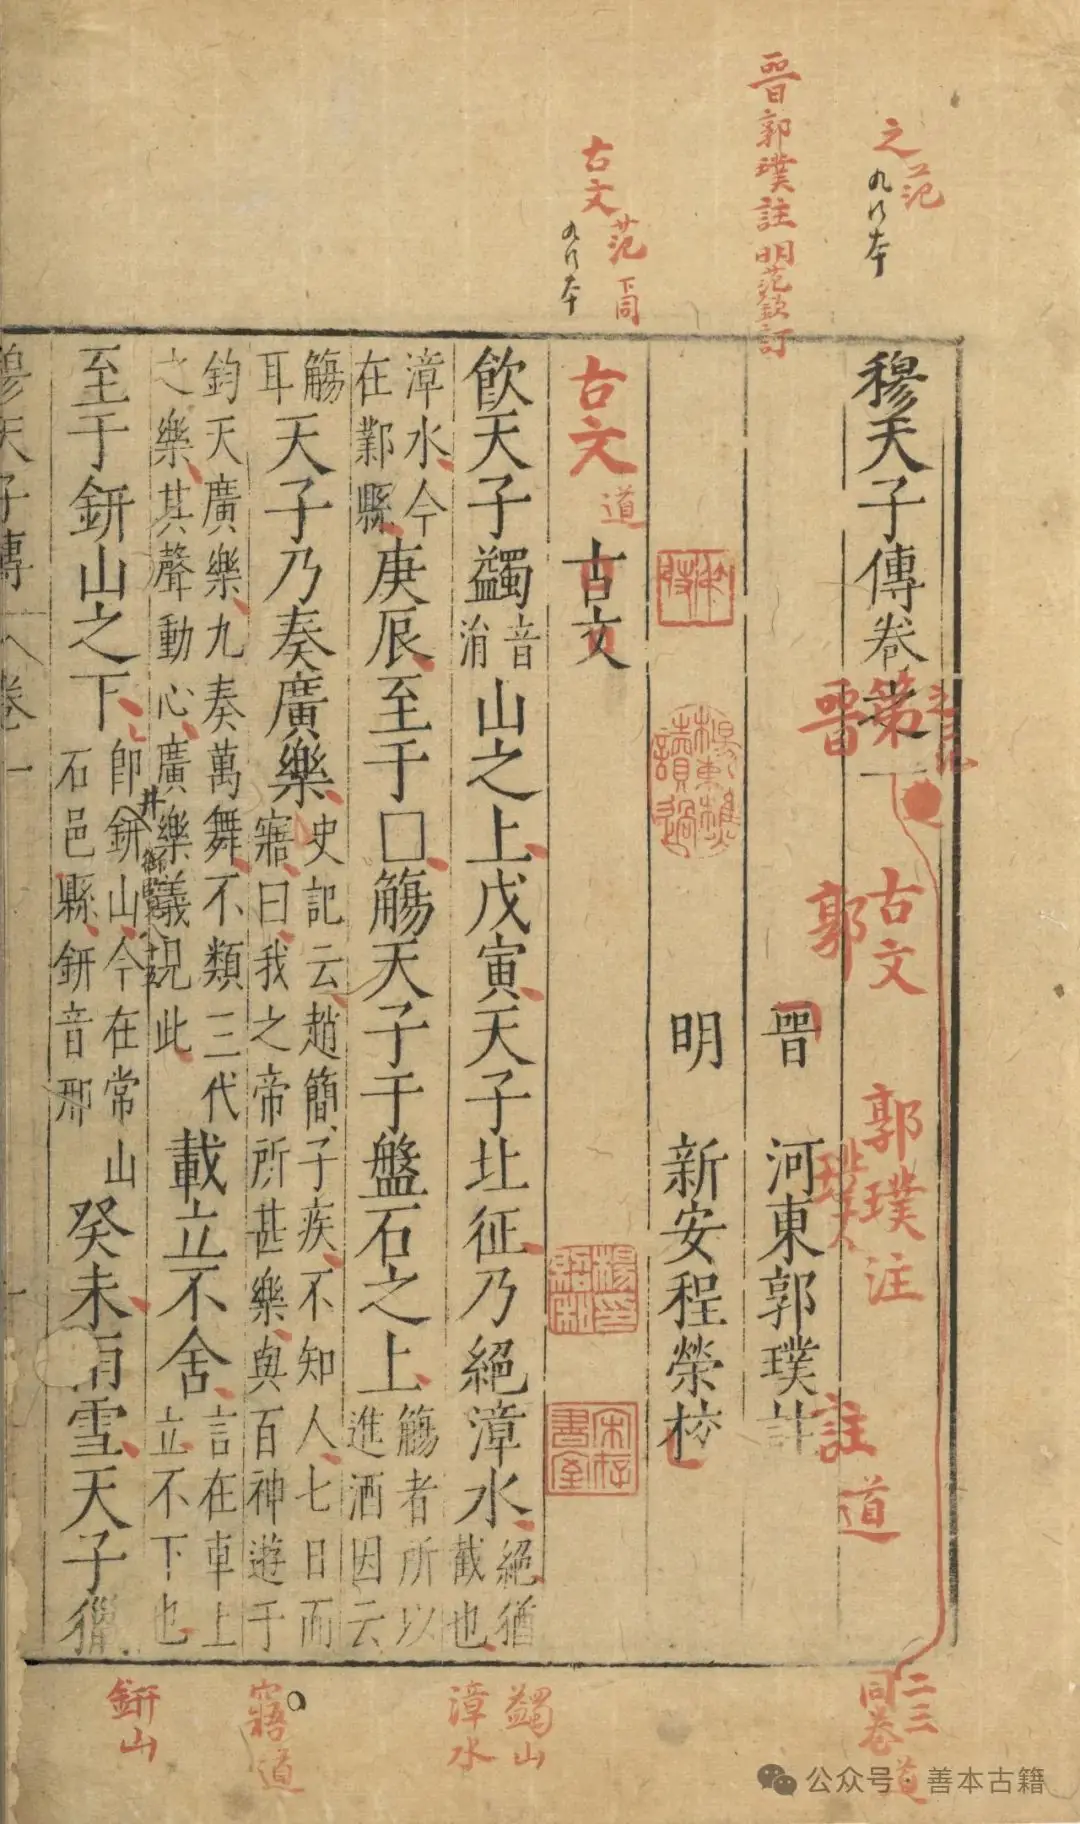 之范
九行本
晉郭璞註明范欽訂
古文范下同
九行本
穆天子傳卷之一
第
古文 郭璞注
道
晉 郭璞 註
晉 河東郭璞註
明 新安程榮校
古文
道
古文
飲天子蠲音涓山之上戊寅天子北征乃絕漳水絕猶截也
漳水今在鄴縣庚辰至于□觴天子于盤石之上觴者所以進酒因云
觴耳天子乃奏廣樂史記云趙簡子疾不知人七日而寤曰我之帝所甚樂與百神遊于
鈞天廣樂九奏萬舞不類三代之樂其聲動心廣樂義見此載立不舍言在車上立不下也
井
至于鈃山之下即鈃山今在常山石邑縣鈃音邢癸未雨雪天子獵
穆天子傳 卷一 一
楊紹和印
宋存書室
二三卷同
道
蠲山
漳水
寤道
鈃山
公众号·善本古籍